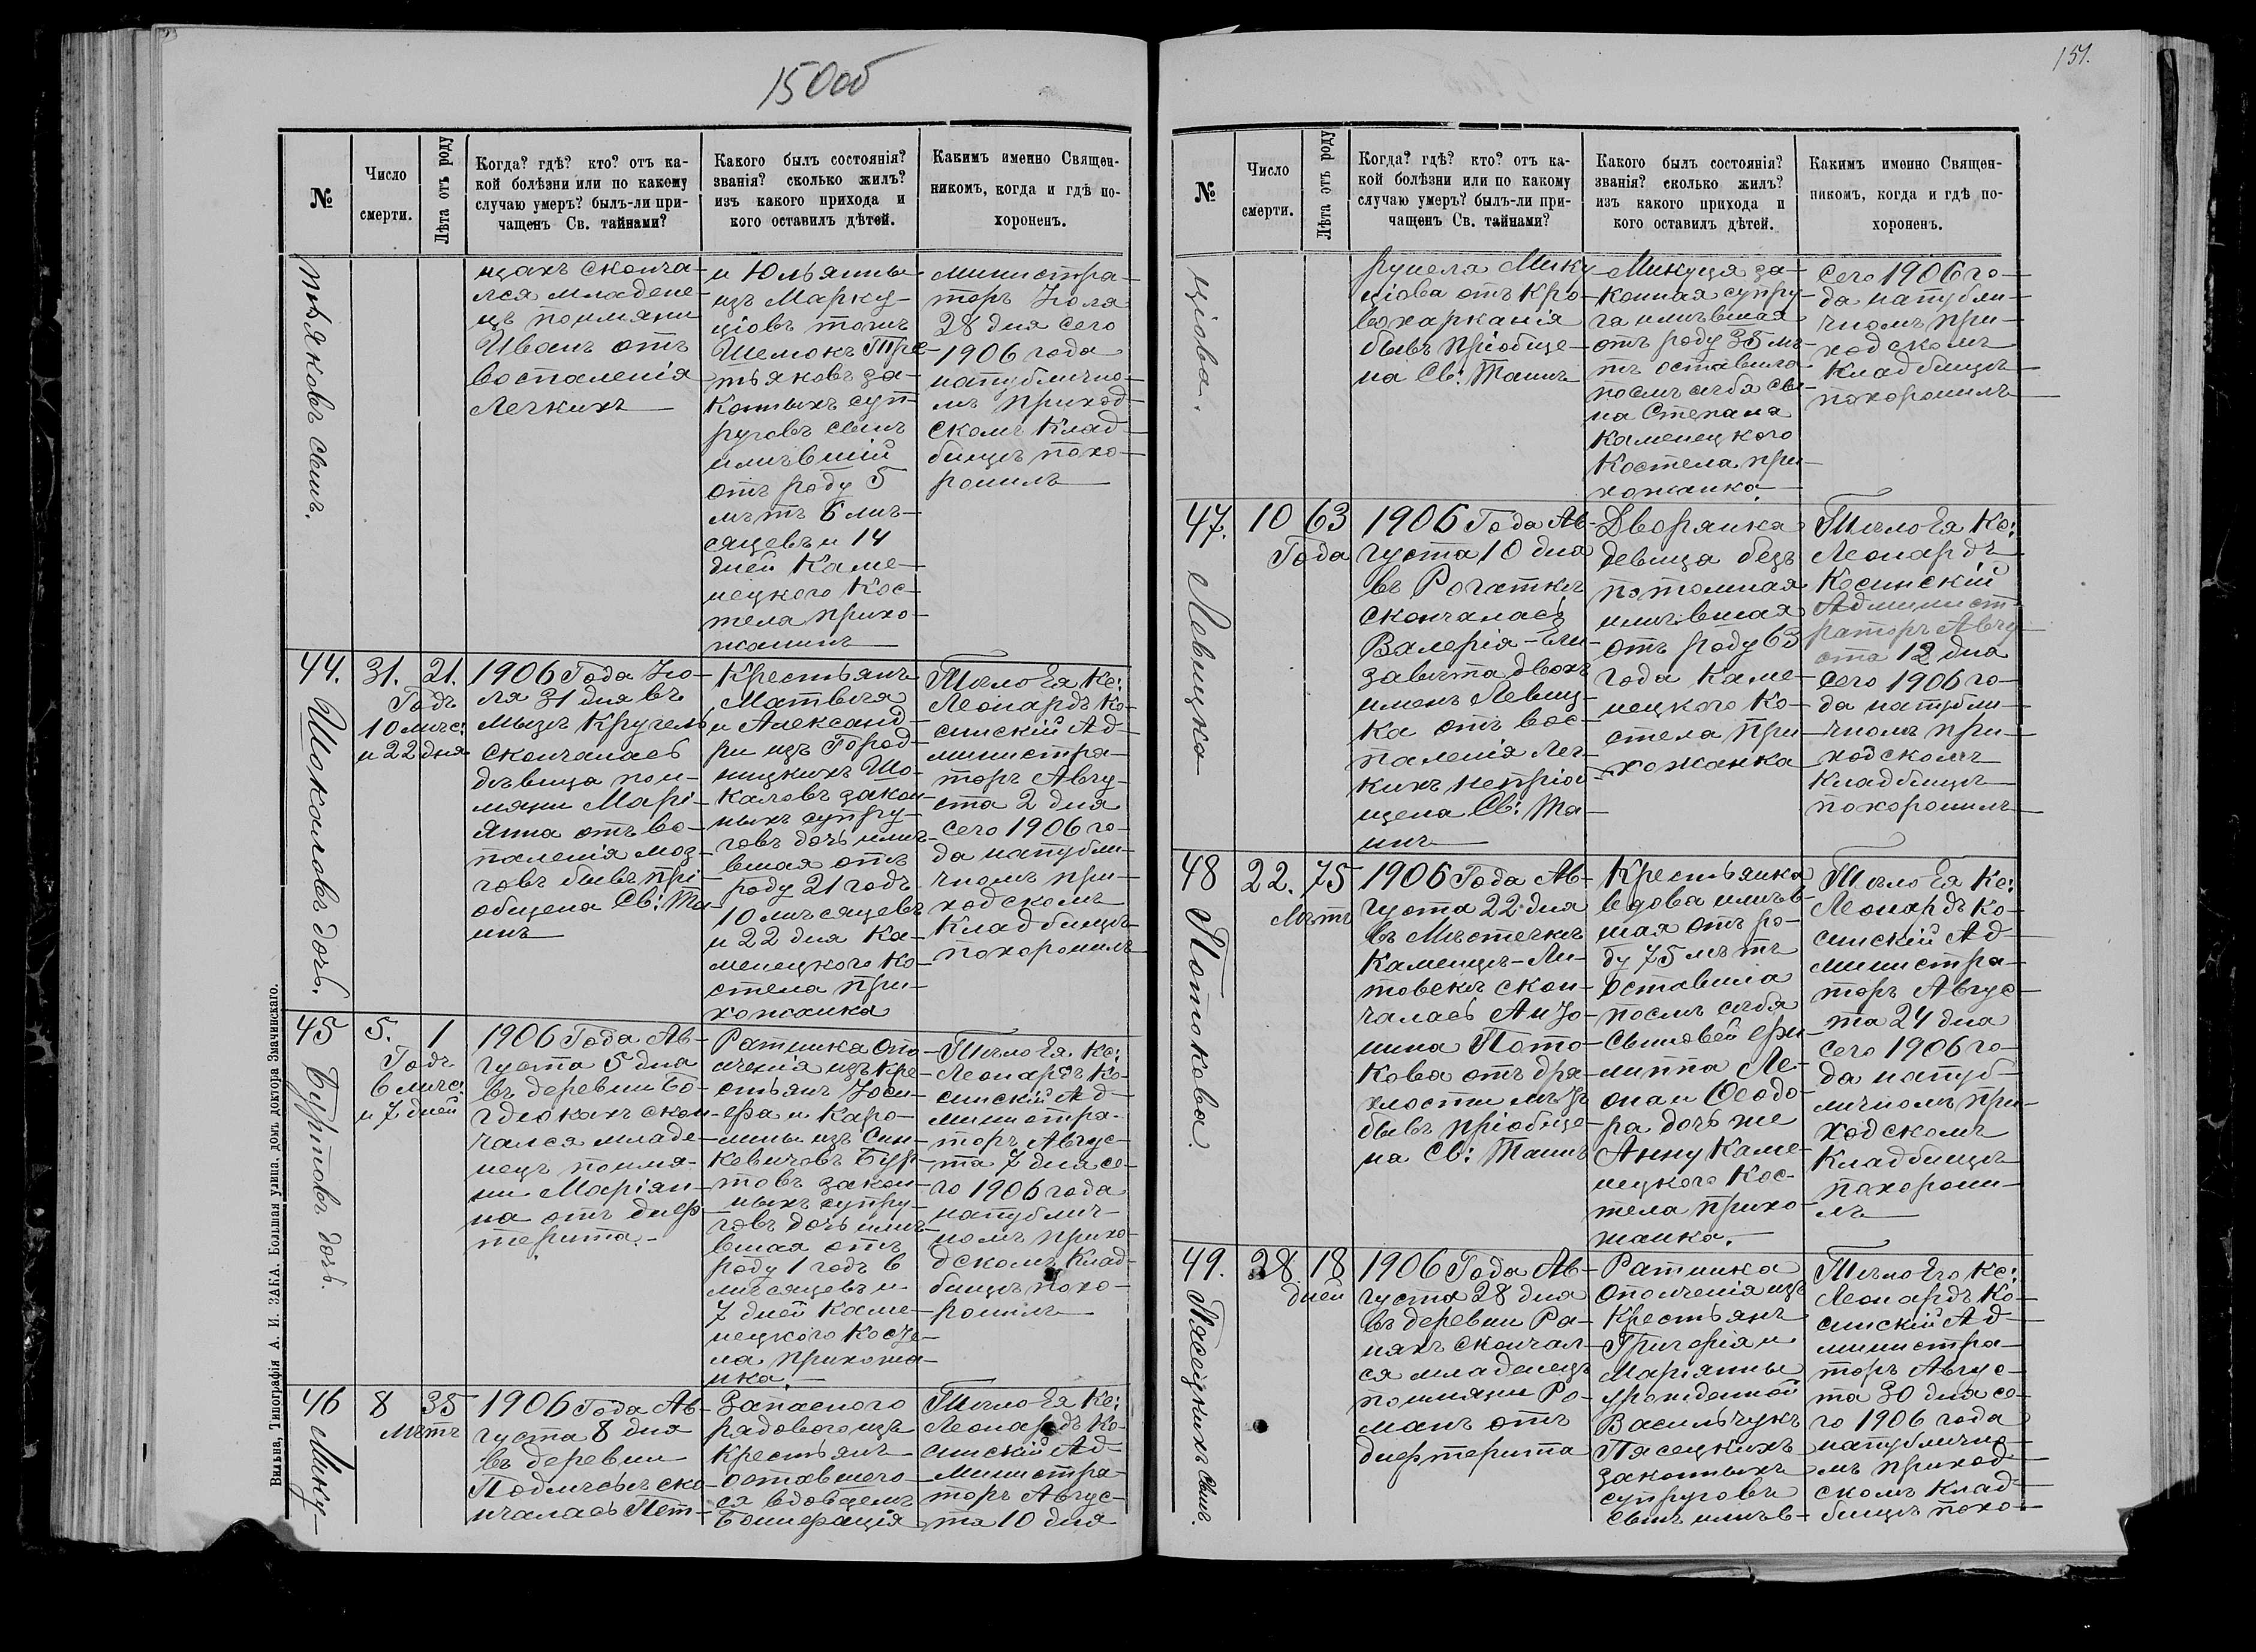 150об
№
Число
смерти.
Лѣта отъ роду
Когда? гдѣ? кто? отъ ка-
кой болѣзни или по какому
случаю умеръ? былъ-ли при-
чащенъ Св. тайнами?
Какого былъ состоянія?
званія? сколько жилъ?
изъ какого прихода и
кого оставилъ дѣтей.
Какимъ именно Священ-
никомъ, когда и гдѣ по-
хороненъ.
тьяковъ сынъ.
цахъ сконча-
лся младене-
цъ поимяни
Иванъ отъ
воспаленія
Легкихъ
и Юльянны
изъ Марку-
ціовъ тожъ
Шемокъ Тре-
тьяковъ за-
конныхъ суп-
руговъ сынъ
имѣвшій
отъ роду 5
лѣтъ 6 мѣ-
сяцевъ и 14
дней Каме-
нецкого Кос-
тела прихо-
жанинъ
министра-
торъ Іюля
28 дня сего
1906 года
напублично-
мъ приход-
скомъ Клад-
бищѣ похо-
ронилъ
44.
Шокаловъ дочь.
31.
21.
Годъ
10 мѣс:
и 22 дня
1906 Года Ію-
ля 31 дня въ
мызѣ Кругель
скончалась
дѣвица пои-
мяни Марі-
Анна отъ во-
паленія моз-
говъ бывъ прі
общена Св: Та-
инъ
Крестьянъ
Матвѣя
и Александ-
ри изъ Город-
ницкихъ Шо-
каловъ закон-
ныхъ супру-
говъ дочь имѣ-
вшая отъ
роду 21 годъ
10 мѣсяцевъ
и 22 дня Ка-
менецкого Ко-
стела при-
хожанка
Тѣло Ея Кс:
Леонардъ Ко-
синскій Ад-
министра-
торъ Авгу-
ста 2 дня
сего 1906 го-
да напубли-
чномъ при-
ходскомъ
Кладбищѣ
похоронилъ
45
Буртовъ дочь.
5.
1
Годъ
6 мѣс:
и 7 дней
1906 Года Ав-
густа 5 дня
въ деревни Бо-
гдюкахъ скон-
чался младе-
нецъ поимя-
ни Маріян-
на отъ диф-
терита.
Ратника Опо
лченія изъ Кре-
стьянъ Іоси-
фа и Каро-
лины изъ Син-
кевичовъ Бур-
товъ закон-
ныхъ супру-
говъ дочь имѣ-
вшая отъ
роду 1 годъ 6
мѣсяцевъ и
7 дней Каме-
нецкого Косте-
ла прихожа-
нка.
Тѣло Ея Кс:
Леонардъ Ко-
синскій Ад-
министра-
торъ Авгус-
та 7 дня се-
го 1906 года
напублич-
номъ прихо-
дскомъ Клад-
бищѣ похо-
ронилъ
46
Мику-
8
35
лѣтъ
1906 Года Ав-
густа 8 дня
въ деревни
Подлѣсьѣ ско-
нчалась Пет-
Запасного
рядового изъ
Крестьянъ
оставшего-
ся вдовцемъ
Бонифація
Тѣло Ея Кс:
Леонардъ Ко-
синскій Ад-
Министра-
торъ Авгус-
та 10 дня
Вильна, Типографія А. И. ЗАКА. Большая улица, домъ доктора Змачинскаго.
151.
№
Число
смерти.
Лѣта отъ роду
Когда? гдѣ? кто? отъ ка-
кой болѣзни или по какому
случаю умеръ? былъ-ли при-
чащенъ Св. тайнами?
Какого былъ состоянія?
званія? сколько жилъ?
изъ какого прихода и
кого оставилъ дѣтей.
Какимъ именно Священ-
никомъ, когда и гдѣ по-
хороненъ.
ціова.
рунела Мику
ціова отъ Кро-
вохарканія
бывъ пріобще-
на Св: Таинъ
Микуця за-
конная супру-
га имѣвшая
отъ роду 35 лѣ-
тъ оставила
послѣ себя сы-
на Степана
Каменецкого
Костела при-
хожанка.
сего 1906 го-
да напубли-
чномъ при-
ходскомъ
Кладбищѣ
похоронилъ
47.
Левицка
10
63
Года
1906 Года Ав-
густа 10 дня
въ Рогаткѣ
скончалась
Валерія-Ели-
завѣта двохъ
именъ Левиц-
ка отъ вос-
паленія Лег-
кихъ непріоб-
щена Св: Та-
инъ
Дворянка
девица безъ
потомная
имѣвшая
отъ роду 63
года Каме-
нецкого Ко-
стела при-
хожанка
Тѣло Ея Кс:
Леонардъ
Косинскій
Админист-
раторъ Авгу-
ста 12 дня
сего 1906 го-
да напубли-
чномъ при-
ходскомъ
Кладбищѣ
похоронилъ
48
Потокова
22.
75
Лѣтъ
1906 Года Ав-
густа 22 дня
въ Мѣстечкѣ
Каменцѣ-Ли-
товскѣ скон-
чалась Анто-
нина Пото-
кова отъ дря-
хлости лѣтъ
бывъ пріобще-
на Св: Таинъ
Крестьянка
вдова имѣв-
шая отъ ро-
ду 75 лѣтъ
Оставила
послѣ себя
Сыновей Фи-
липпа Ле-
она и Ѳеодо-
ра дочь же
Анну Каме-
нецкого Кос-
тела прихо-
жанка.
Тѣло Ея Кс:
Леонардъ Ко-
синскій Ад-
министра-
торъ Авгус-
та 24 дня
сего 1906 го-
да напуб-
личномъ при-
ходскомъ
Кладбищѣ
похорони-
лъ
49.
Пясецкихъ сынъ.
28
18
дней
1906 Года Ав-
густа 28 дня
въ деревни Ра-
няхъ скончал-
ся младенецъ
поимяни Ро-
манъ отъ
дифтерита
Ратника
Ополченія изъ
Крестьянъ
Григорія и
Маріянны
урожденной
Васильчукъ
Пясецкихъ
законныхъ
супруговъ
Сынъ имѣв-
Тѣло Его Кс:
Леонардъ Ко-
синскій Ад-
министра-
торъ Авгус-
та 30 дня се-
го 1906 года
напублично-
мъ приход-
скомъ Клад-
бищѣ похо-